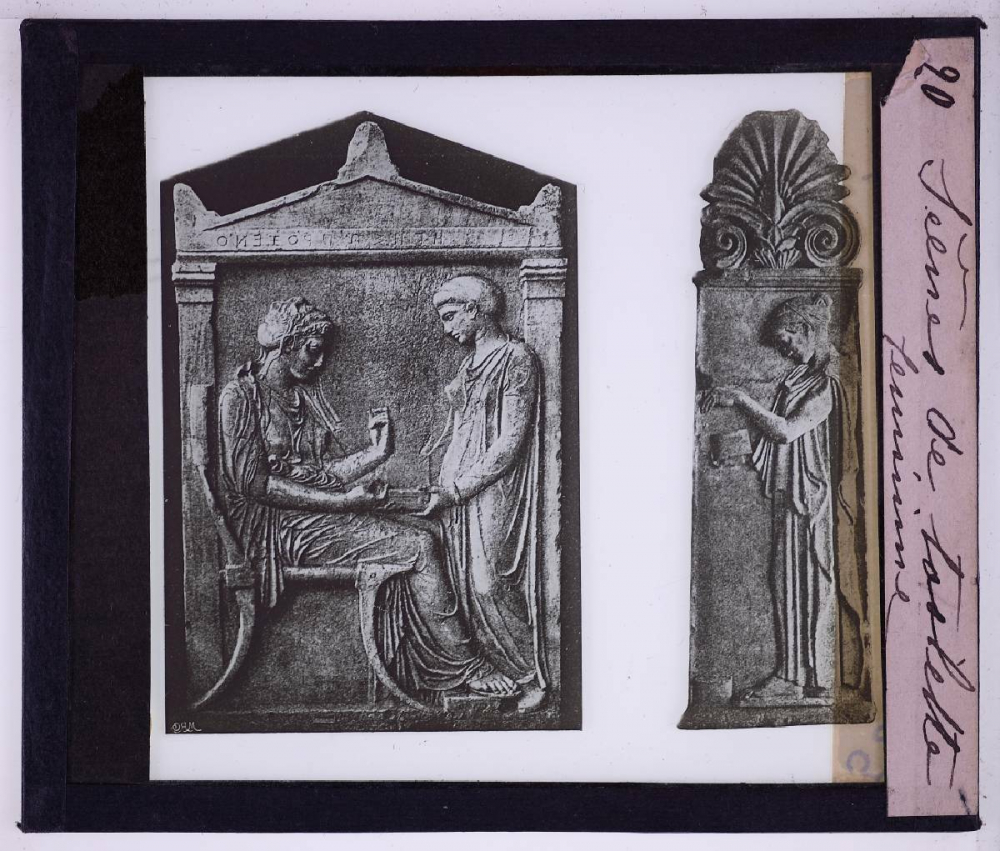 20 Scènes de toilette
féminine